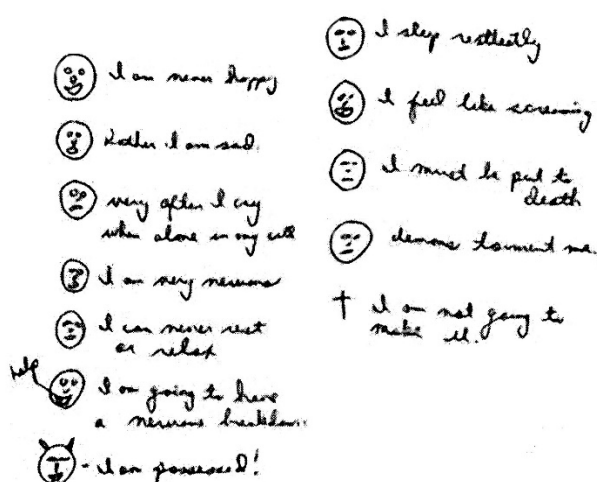 I am never happy
Rather I am sad.
very often I cry
when alone in my cell
I am very nervous
I can never rest
or relax
Help
I am going to have
a nervous breakdown
- I am possessed!
I sleep restlestly
I feel like screaming
I must be put to
death
demons torment me.
I am not going to
make it.